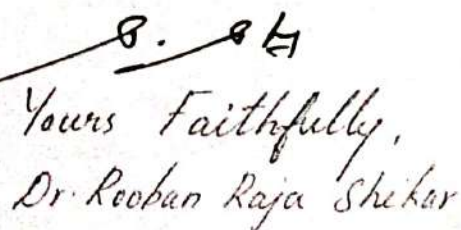 Yours Faithfully,
Dr. Rooban Raja Shekar